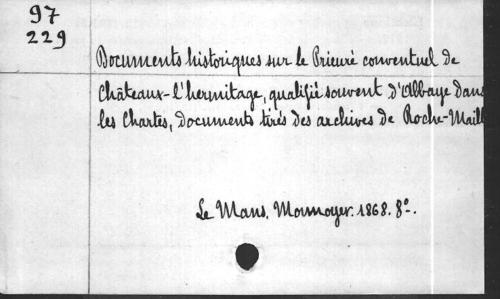 97
229
Documents historiques sur le Prieuré conventuel de
Châteaux-l'hermitage, qualifié souvent d'Abbaye dans
les Chartes, documents tirés des archives de Roche-Maill
Le Mans. Monnoyer. 1868. 8º.